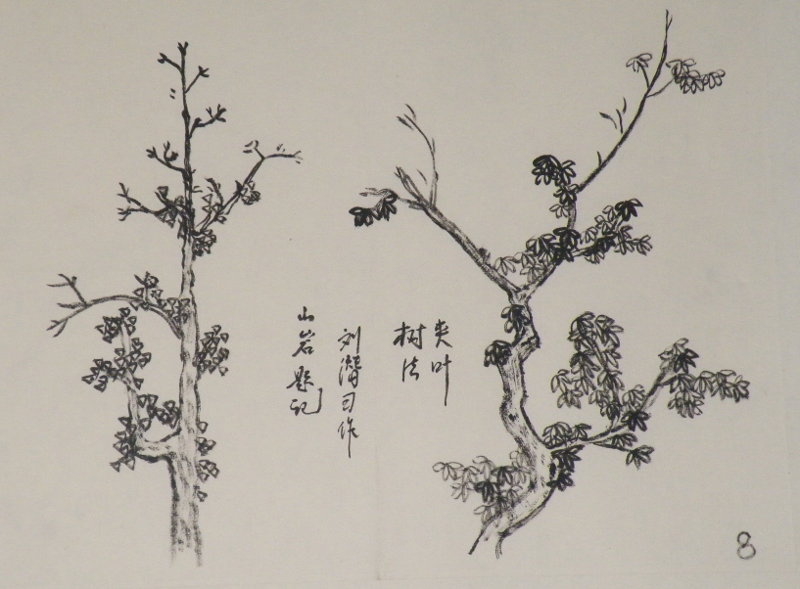 夹叶
树法
刘潜习作
山岩题记
8